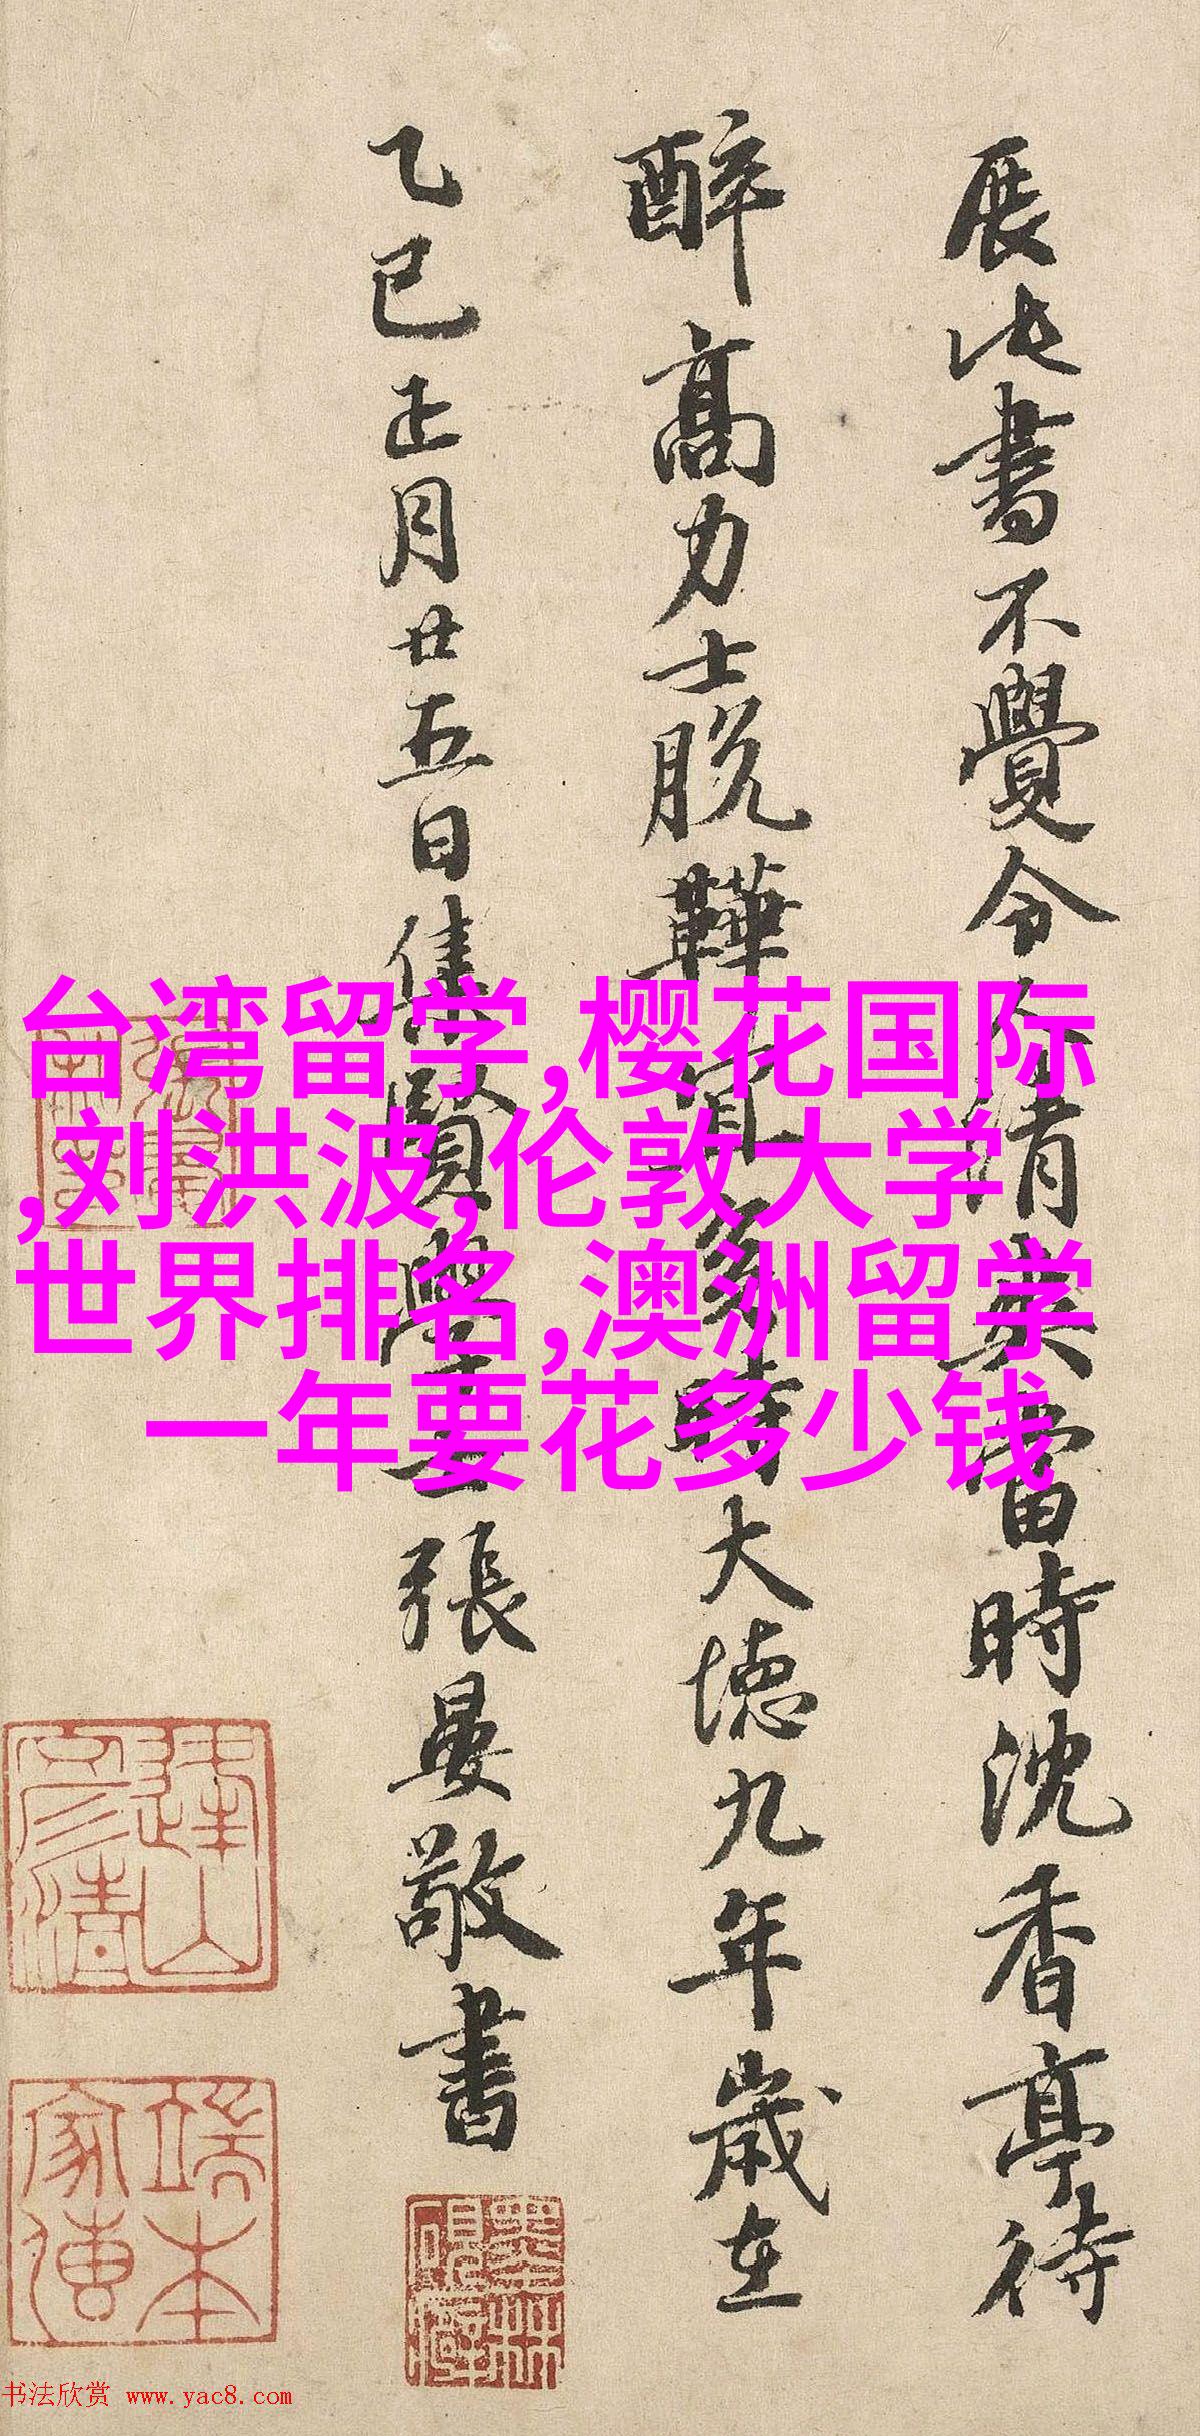 展此書不覺令人清爽當時沈香亭待
醉高力士脱鞾宜多時大德九年歲在
乙巳正月廿五日集賢學士張晏敬書
台湾留学,樱花国际
,刘洪波,伦敦大学
世界排名,澳洲留学
一年要花多少钱
書法欣赏 www.yac8.com